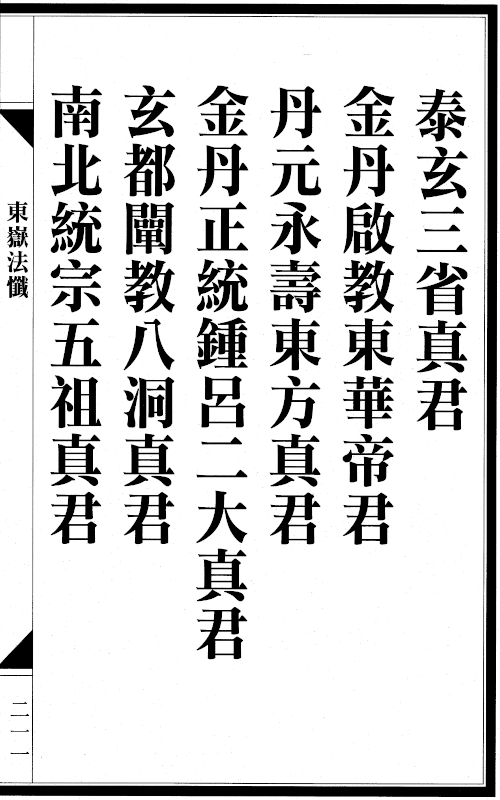 泰玄三省真君
金丹啟教東華帝君
丹元永壽東方真君
金丹正統鍾呂二大真君
玄都闡教八洞真君
南北統宗五祖真君
東嶽法懺
二一一